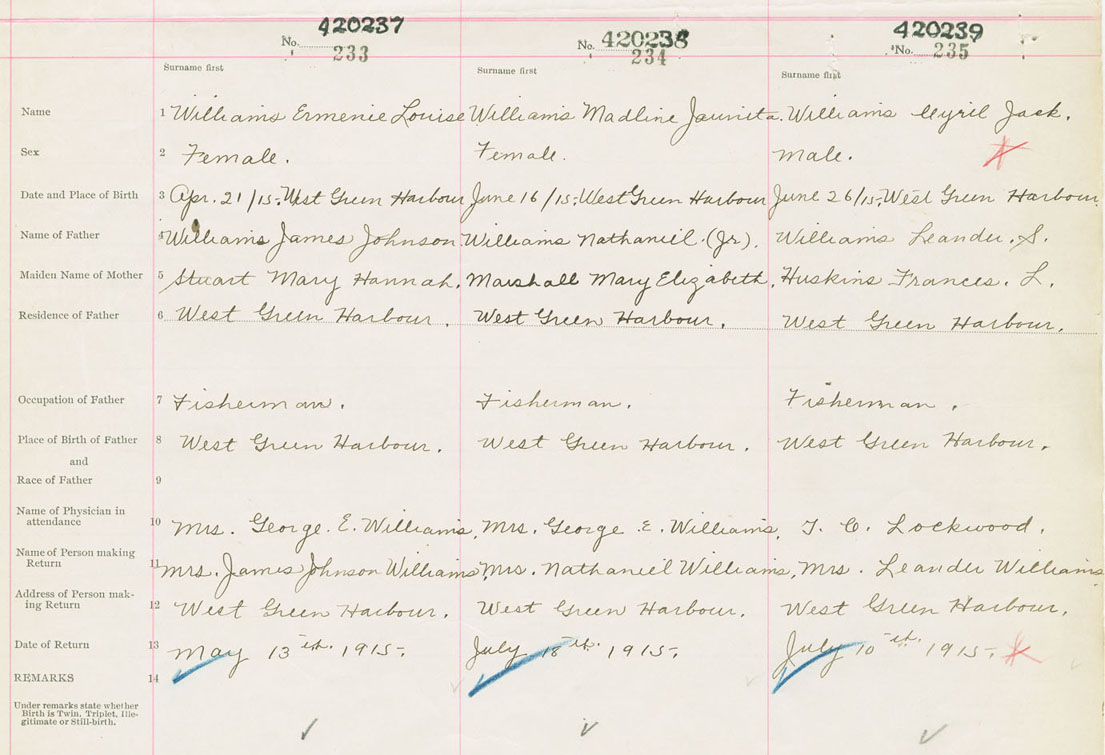 420237 420238 420239
No. 233 No. 234 No. 235
Surname first Surname first Surname first
Name 1 Williams Ermenie Louise Williams Madline Jaunita. Williams Cyril Jack.
Sex 2 Female. Female. Male.
Date and Place of Birth 3 Apr. 21/15, West Green Harbour June 16/15, West Green Harbour June 26/15, West Green Harbour.
Name of Father 4 Williams James Johnson Williams Nathaniel. (Jr). Williams Leander. S.
Maiden Name of Mother 5 Stuart Mary Hannah. Marshall Mary Elizabeth. Huskins Frances. L.
Residence of Father 6 West Green Harbour. West Green Harbour. West Green Harbour.
Occupation of Father 7 Fisherman. Fisherman. Fisherman.
Place of Birth of Father 8 West Green Harbour. West Green Harbour. West Green Harbour.
and
Race of Father 9
Name of Physician in
attendance 10 Mrs. George. E. Williams, Mrs. George. E. Williams, Lockwood.
Name of Person making
Return 11 Mrs. James Johnson Williams, Mrs. Nathaniel Williams, Mrs. Leander Williams
Address of Person mak-
ing Return 12 West Green Harbour. West Green Harbour. West Green Harbour.
Date of Return 13 May 13th. 1915. July 18th. 1915. July 10th. 1915.
REMARKS 14
Under remarks state whether
Birth is Twin, Triplet, Ille-
gitimate or Still-birth.